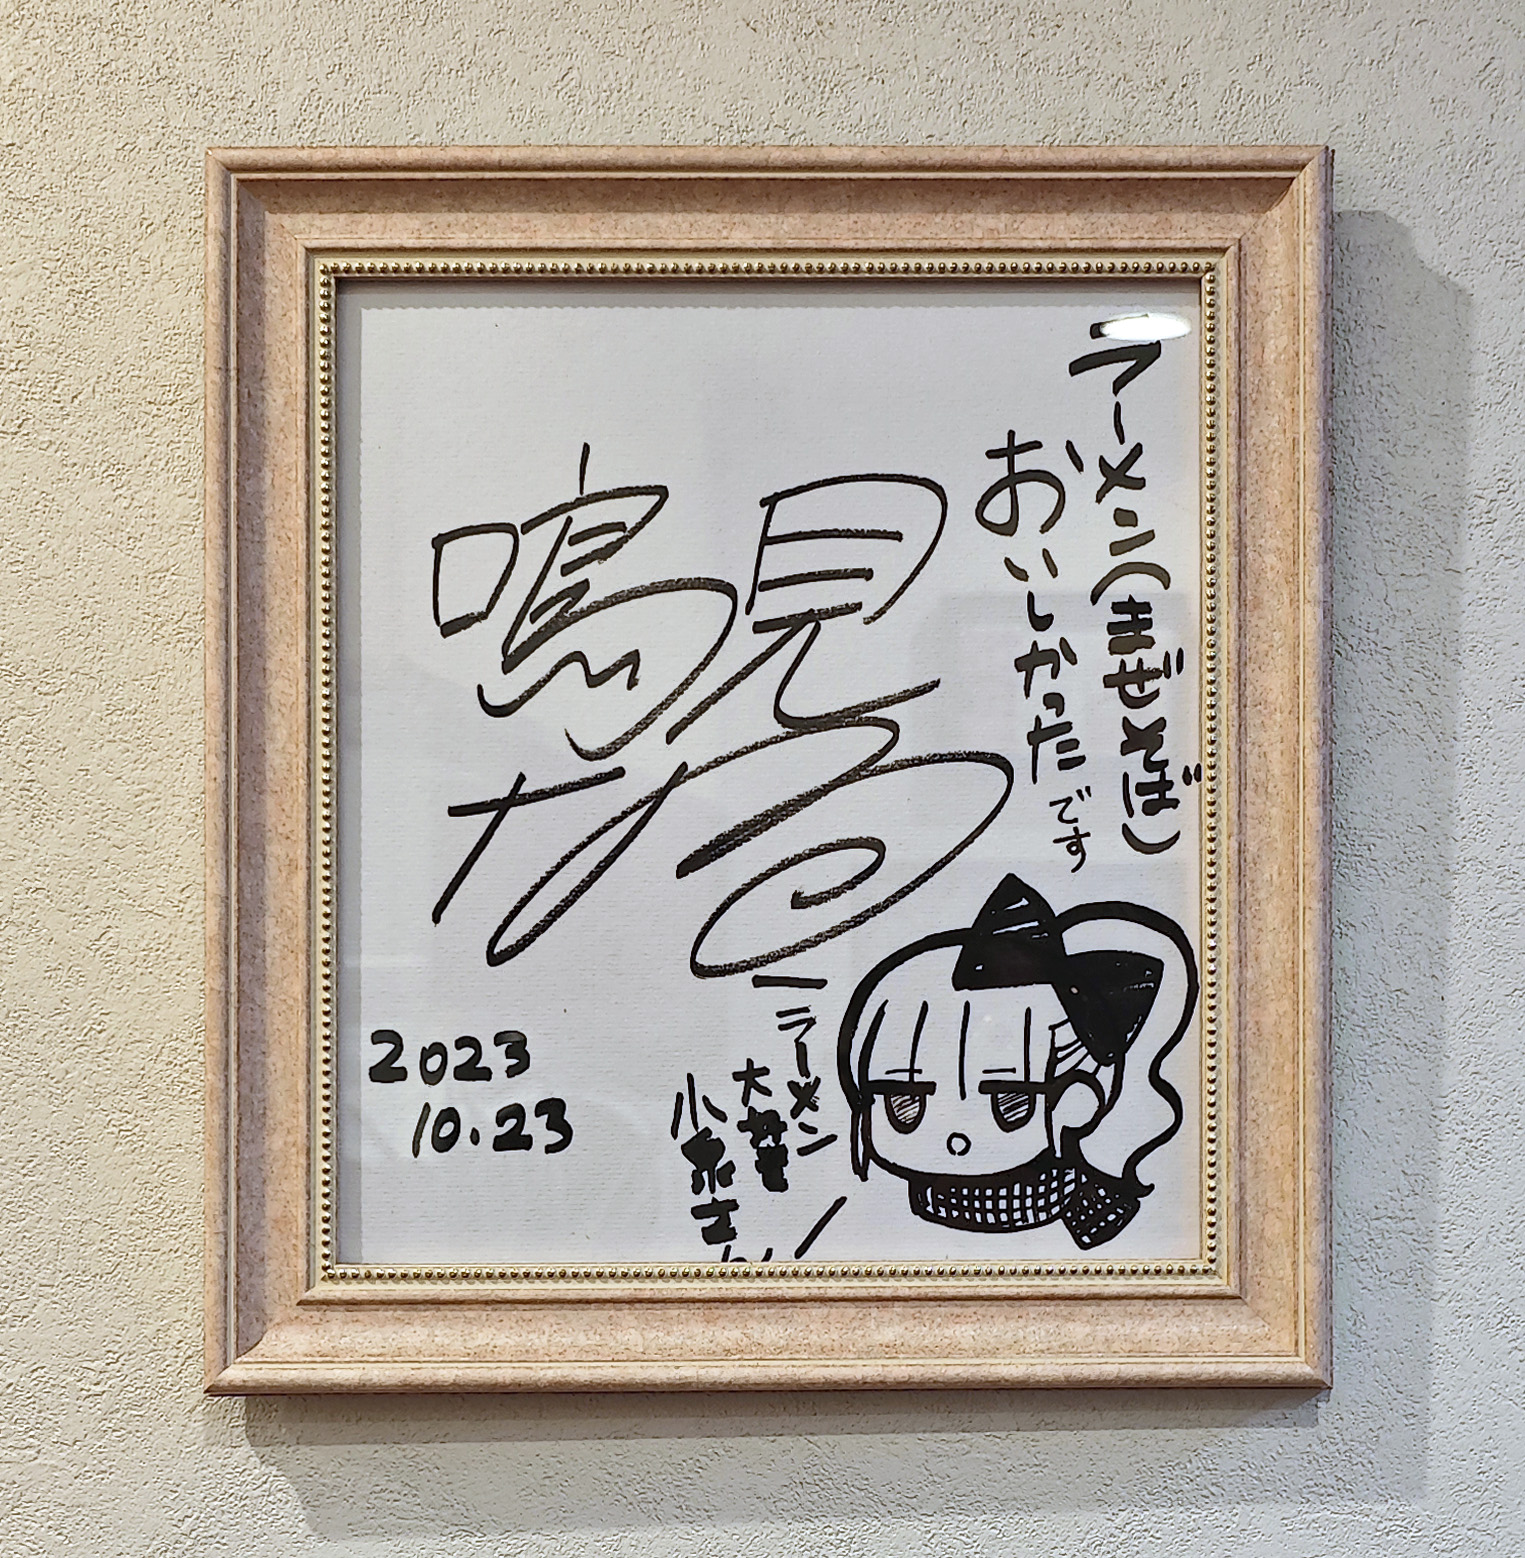 ラーメン(まぜそば)
おいしかったです
鳴見
なる
ラーメン
大好き
小泉さん
2023
10.23